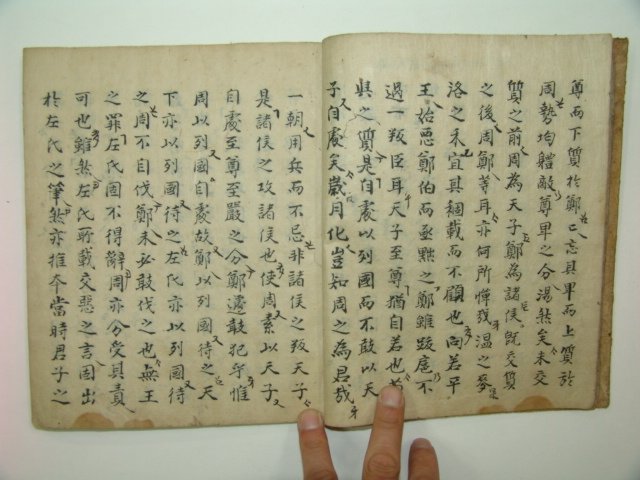 尊而下質於鄭〻忘其卑而上質於
周勢均體敵尊卑之分湯然矣未交
質之前周為天子鄭為諸侯旣交質
之後周鄭等耳亦何所憚殘温之麥
洛之禾宜其稇載而不顧也向若平
王始惡鄭伯而亟黜之鄭雖跋扈不
過一叛臣耳天子至尊猶自若也
與之質是自處以列國而不敢以天
子自處矣歲月化豈知周之為君哉
一朝用兵而不忌非諸侯之叛天子
是諸侯之攻諸侯也使周素以天子
自處至尊至嚴之分鄭遽敢犯乎惟
周以列國自處故鄭以列國待之天
下亦以列國待之左氏亦以列國待
之周不自伐鄭未必敢伐之也無王
之罪左氏固不得辭周亦分受其責
可也雖然左氏所載交惡之言固出
於左氏之筆然亦推本當時君子之